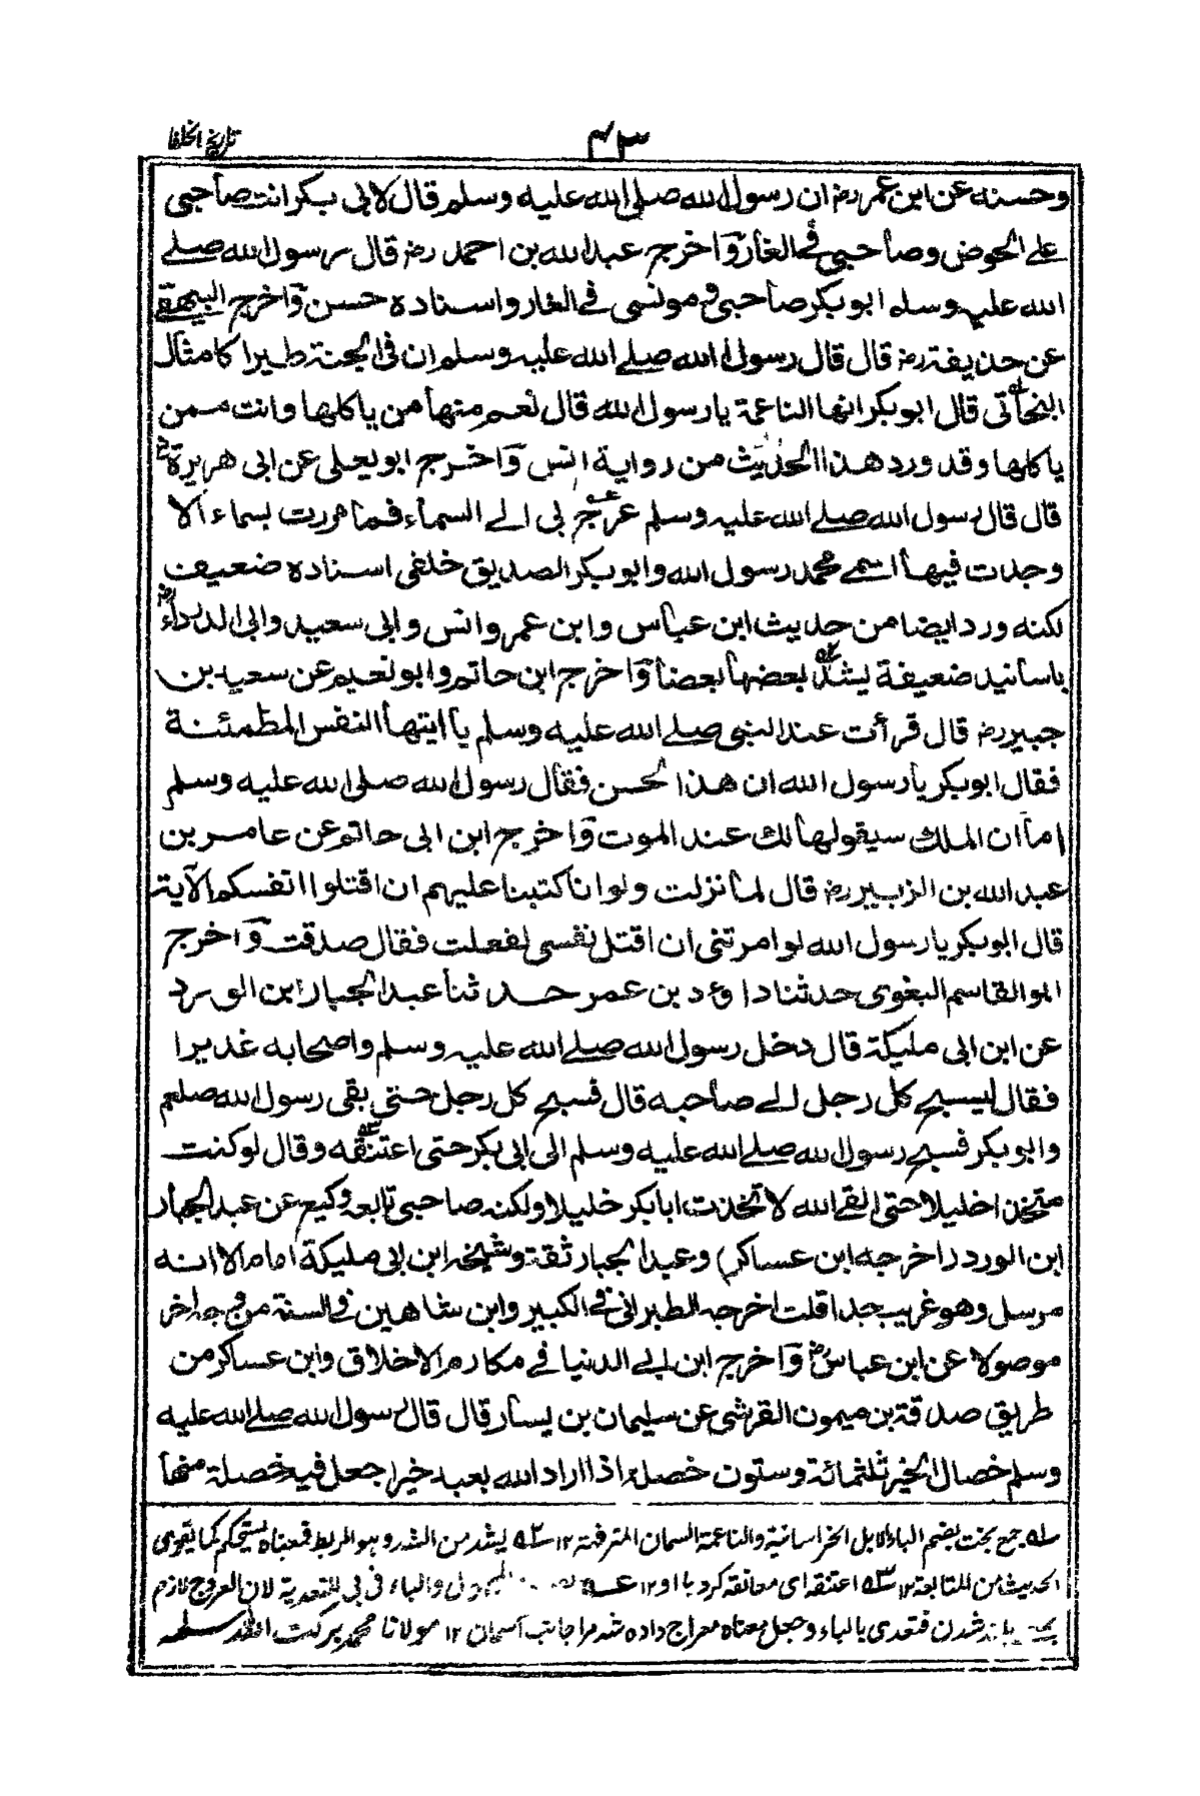 تاريخ الخلفا
٤٣
وحسنه عن ابن عمر رض ان رسول الله صلى الله عليه وسلم قال لابى بكر انت صاحبى
على الحوض وصاحبى فى الغار وَاخرج عبد الله بن احمد رض قال رسول الله صلے
الله عليه وسلم ابو بكر صاحبى ومونسى فى الغار واسناده حسن وَاخرج البيهقے
عن حذيفة رض قال قال رسول الله صلے الله عليه وسلم ان فى الجنة طيرا كامثال
البخاتى قال ابو بكر انها الناعمة يا رسول الله قال نعم منها من ياكلها وانت ممن
ياكلها وقد ورد هذا الحديث من رواية انس وَاخرج ابو يعلى عن ابى هريرة رض
قال قال رسول الله صلے الله عليه وسلم عرج بى الے السماء فما مررت بسماء الا
وجدت فيها اسمے محمد رسول الله وابو بكر الصديق خلفى اسناده ضعيف
لكنه ورد ايضا من حديث ابن عباس وابن عمر وانس وابى سعيد وابى الدرداء رض
باسانيد ضعيفة يشد بعضها بعضا وَاخرج ابن حاتم وابو نعيم عن سعيد بن
جبير رض قال قرأت عند النبى صلے الله عليه وسلم يا ايتها النفس المطمئنة
فقال ابو بكر يا رسول الله ان هذا الحسن فقال رسول الله صلى الله عليه وسلم
اما ان الملك سيقولها لك عند الموت وَاخرج ابن ابى حاتم عن عامر بن
عبد الله بن الزبير رض قال لما نزلت ولو انا كتبنا عليهم ان اقتلوا انفسكم الآية
قال ابو بكر يا رسول الله لو امرتنى ان اقتل نفسى لفعلت فقال صدقت وَاخرج
ابو القاسم البغوى حدثنا داؤد بن عمر حدثنا عبد الجبار ابن الورد
عن ابن ابى مليكة قال دخل رسول الله صلے الله عليه وسلم واصحابه غديرا
فقال ليسبح كل رجل الے صاحبه قال فسبح كل رجل حتى بقى رسول الله صلعم
وابو بكر فسبح رسول الله صلے الله عليه وسلم الى ابى بكر حتى اعتنقه وقال لو كنت
متخذا خليلا حتى القے الله لاتخذت ابا بكر خليلا ولكنه صاحبى تابعه وكيع عن عبد الجبار
ابن الورد اخرجه ابن عساكر) وعبد الجبار ثقة وشيخه ابن ابى مليكة امام الا انه
مرسل وهو غريب جدا قلت اخرجه الطبرانى فى الكبير وابن شاهين فى السنة من وجه اخر
موصولا عن ابن عباس رض وَاخرج ابن ابے الدنيا فے مكارم الاخلاق وابن عساكر من
طريق صدقة بن ميمون القرشى عن سليمان بن يسار قال قال رسول الله صلے الله عليه
وسلم خصال الخير ثلثمائة وستون خصلة اذا اراد الله بعبد خيرا جعل فيه خصلة منها
سله جمع بخت بضم الباء الابل الخراسانية والناعمة السمان المترفة ١٢ سله يشد من الشد وهو الربط فمعناه يستحكم كما يتقوى
الحديث من المتابعة ١٢ سله اعتنقه اى معانقه كرد با او ١٢ عــه المجهول والباء فى بى للتعدية لان العروج لازم
بلند شدن فتعدى بالباء وجعل معناه معراج داده شد مرا جانب آسمان ١٢ مولانا محمد بركت الله سلمه